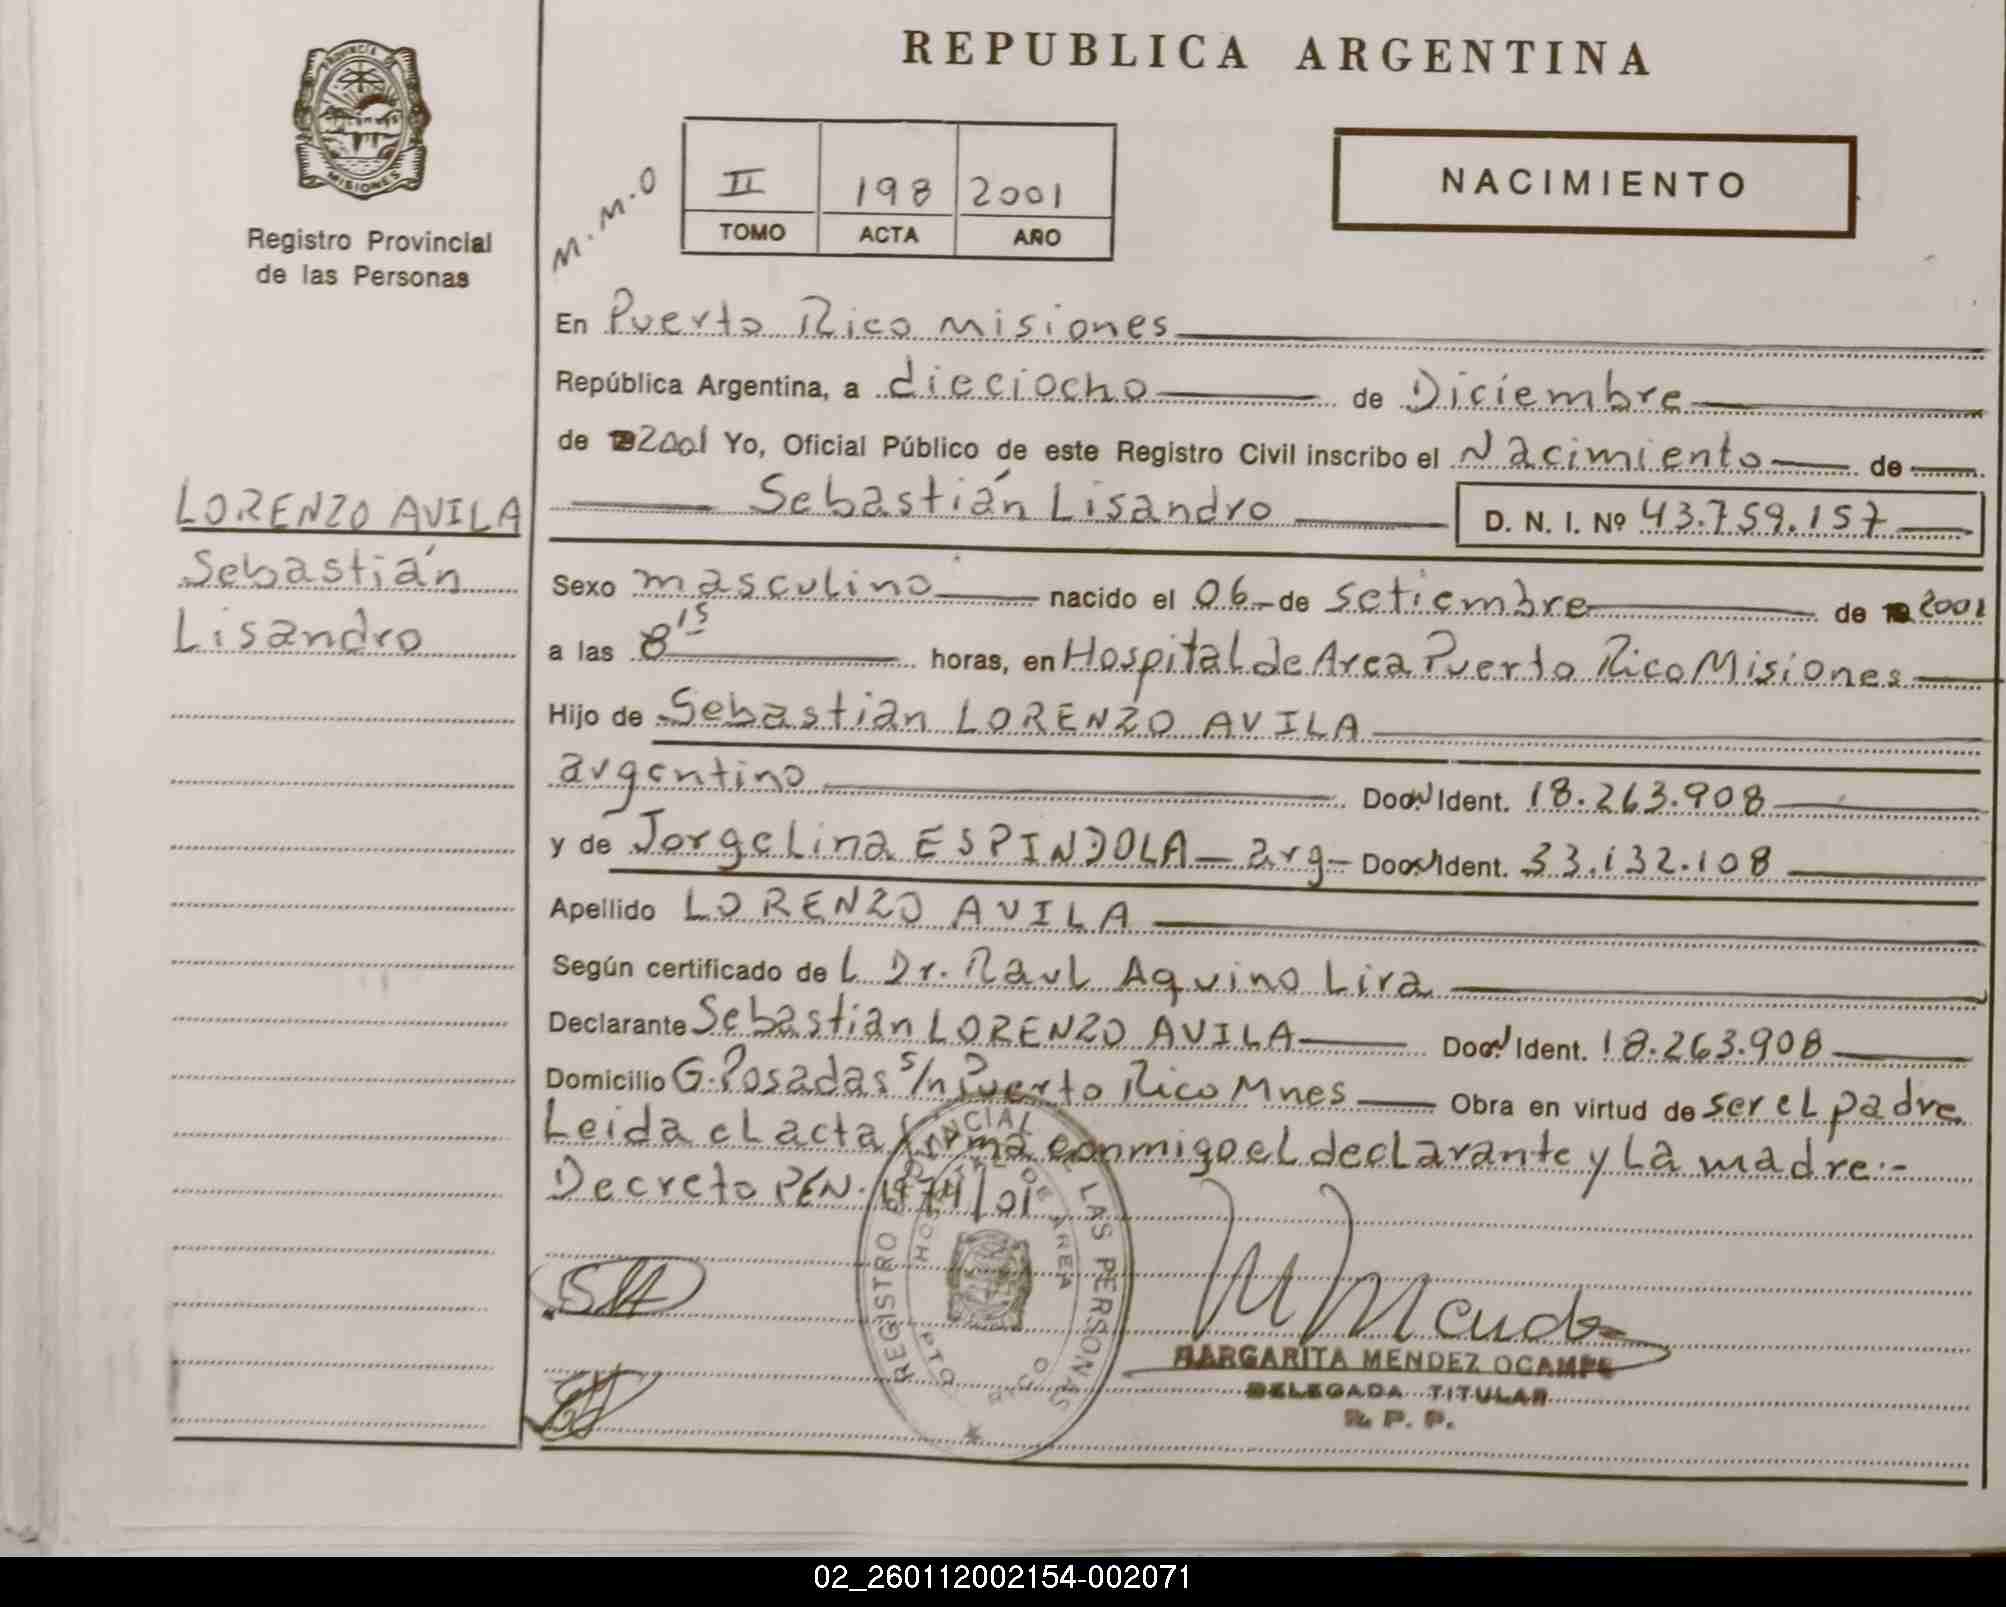 REPUBLICA ARGENTINA
PROVINCIA DE
MISIONES
Registro Provincial
de las Personas
M.M.O
II 198 2001
TOMO ACTA AÑO
NACIMIENTO
En Puerto Rico Misiones
República Argentina, a dieciocho de Diciembre
de 2001 Yo, Oficial Público de este Registro Civil inscribo el Nacimiento de
Sebastián Lisandro D. N. I. Nº 43.759.157
LORENZO AVILA
Sebastián
Lisandro
Sexo masculino nacido el 06 de setiembre de 2001
a las 8 15 horas, en Hospital de Area Puerto Rico Misiones
Hijo de Sebastián LORENZO AVILA
argentino Doc. Ident. 18.263.908
y de Jorgelina ESPINDOLA - arg - Doc. Ident. 33.132.108
Apellido LORENZO AVILA
Según certificado de L Dr. Raul Aquino Lira
Declarante Sebastián LORENZO AVILA Doc. Ident. 18.263.908
Domicilio G. Posadas s/n Puerto Rico Mnes Obra en virtud de ser el padre
Leida el acta firma conmigo el declarante y la madre.-
Decreto PEN. 1474/01
REGISTRO PROVINCIAL DE LAS PERSONAS
HOSPITAL DE AREA
PTO RICO
MARGARITA MENDEZ OCAMPO
DELEGADA TITULAR
R. P. P.
02_260112002154-002071